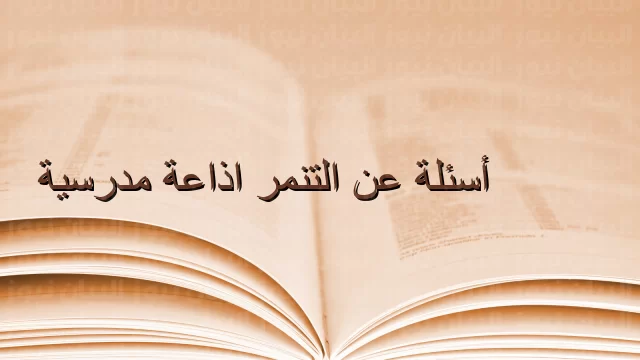 أسئلة عن التنمر اذاعة مدرسية